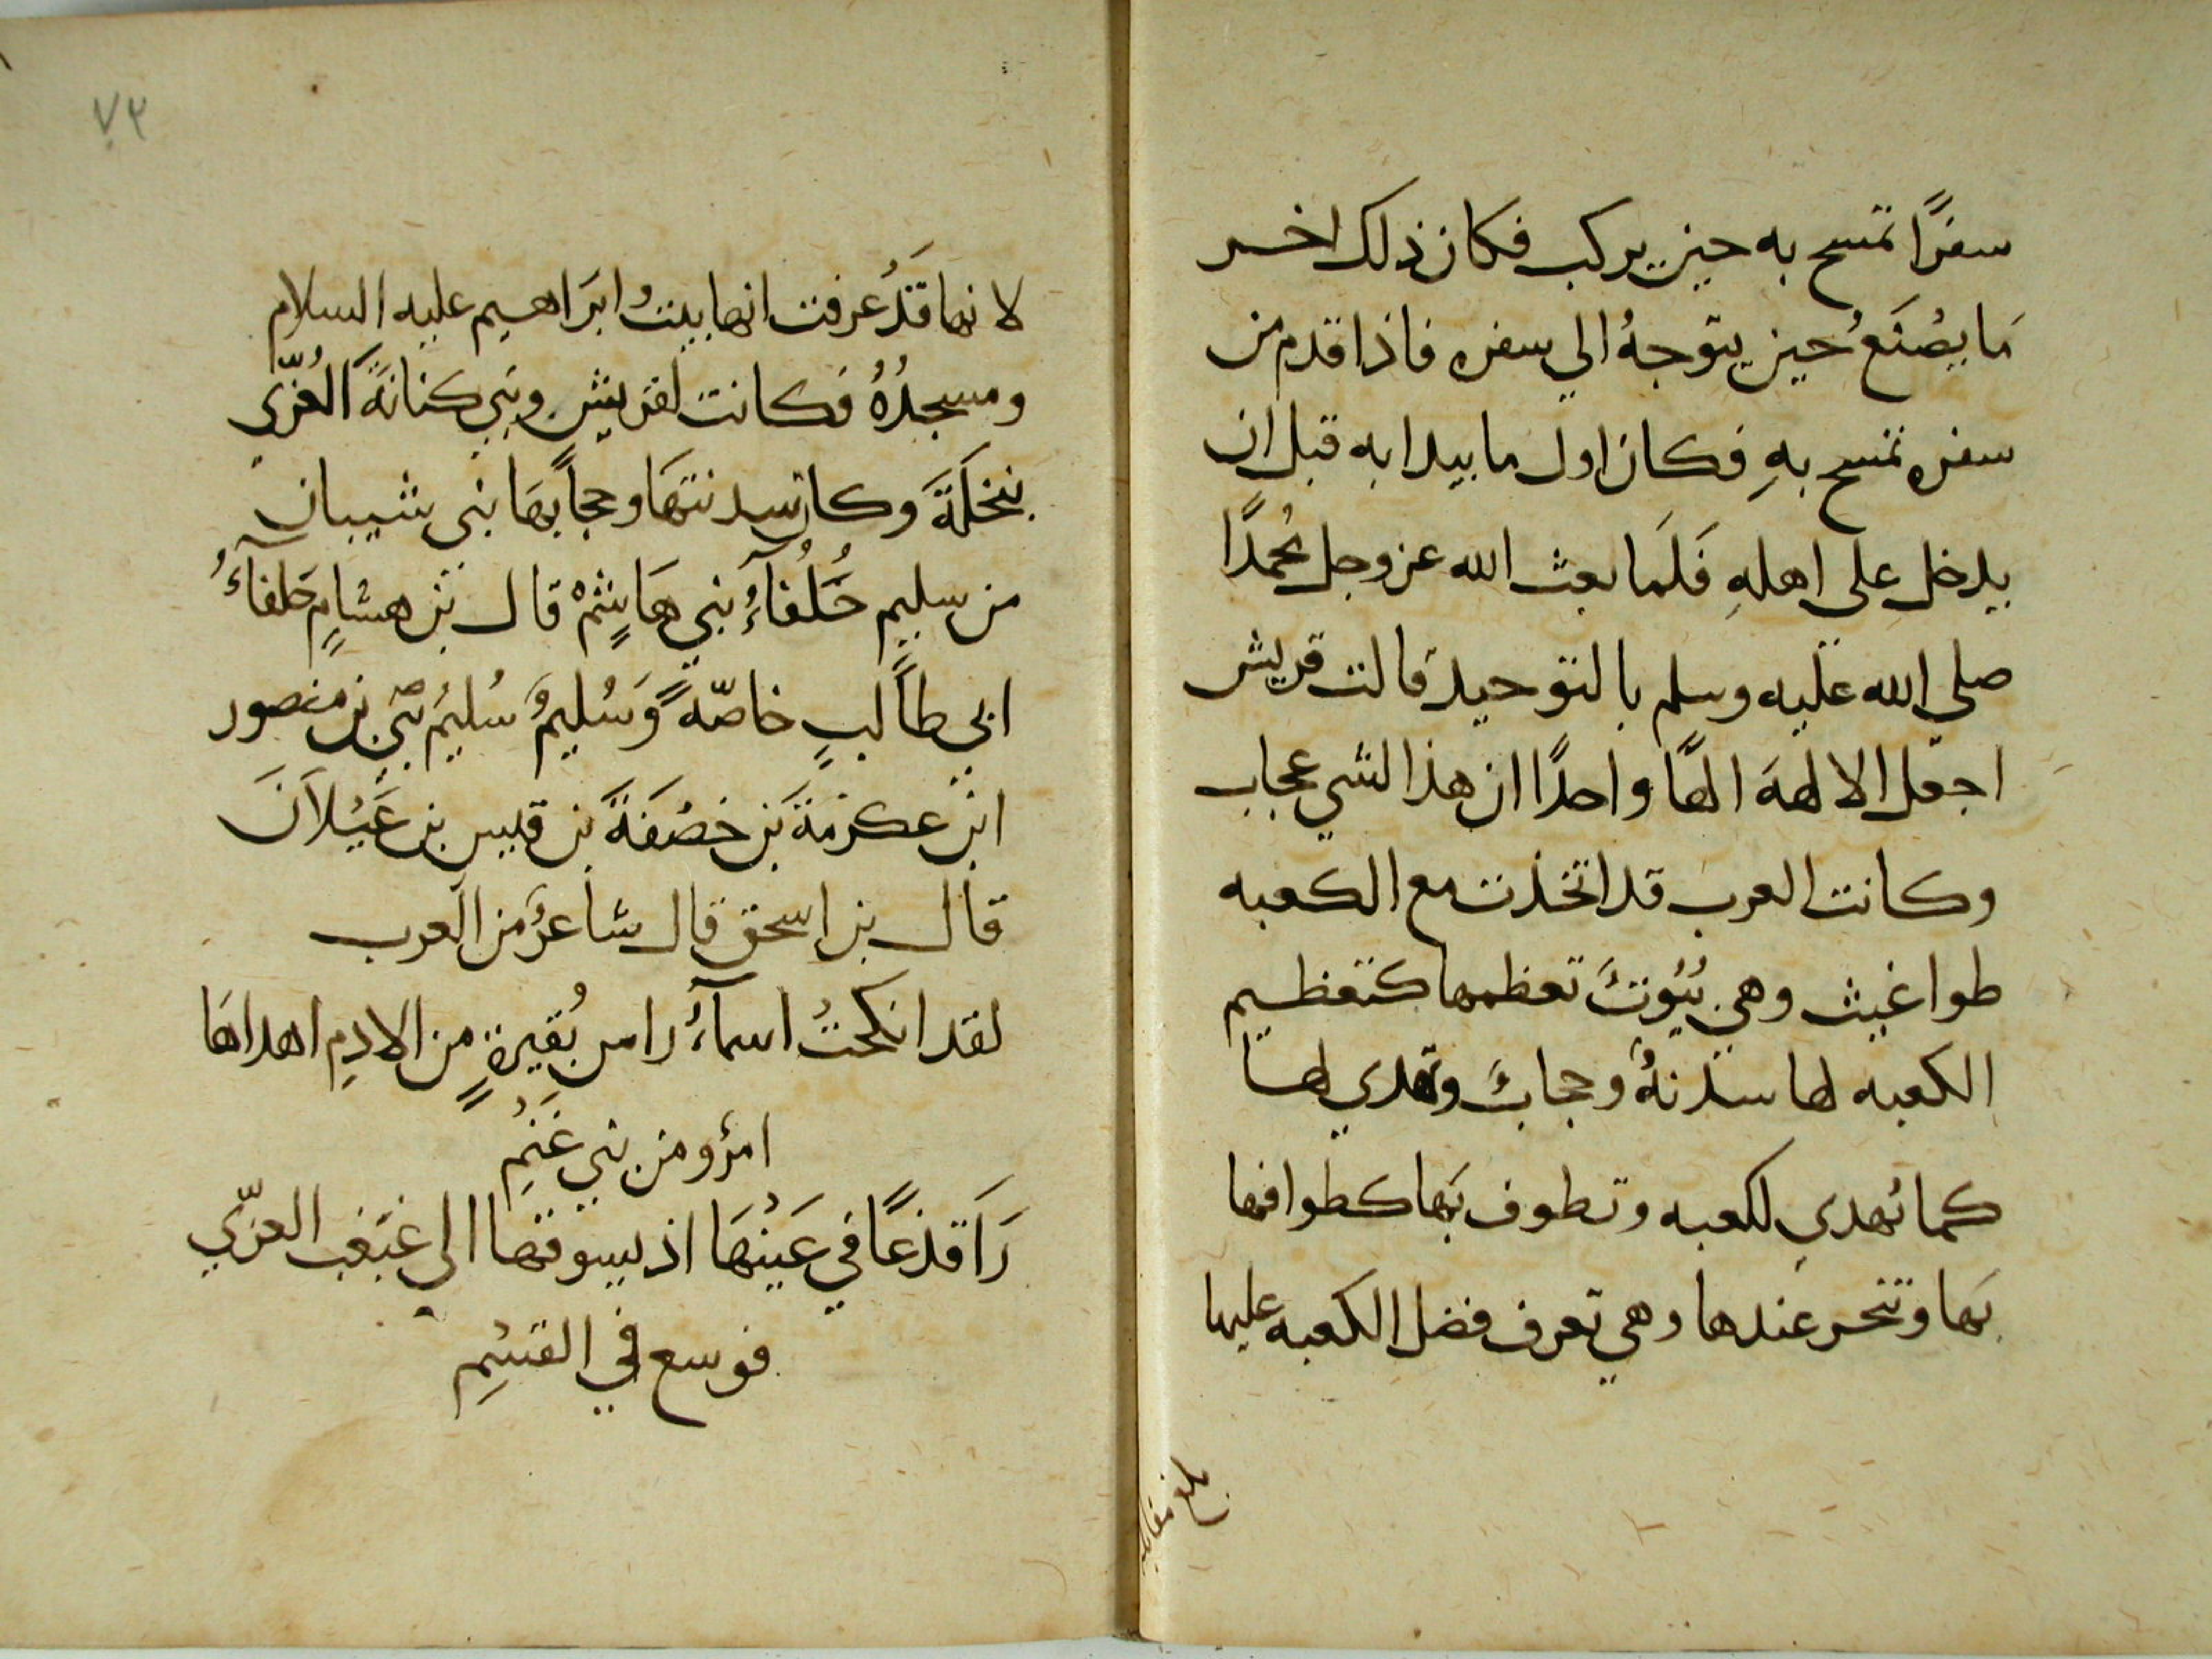 سفرًا تمسح به حين يركب فكان ذلك اخر
مَا يصْنَعُ حين يتوجهُ الي سفره فاذا قدم من
سفره تمسح بهِ فكان اول ما يبدا به قبل ان
يدخل على اهلهِ فَلَما بعث الله عز وجل مُحمدًا
صلي الله عليه وسلم بالتوحيد قالت قريش
اجعل الالهة الهًا واحدًا ان هذا لشي عجاب
وكانت العرب قد اتخذت مع الكعبه
طواغيث وهي بُيُوتٌ تعظمها كتعظيم
الكعبه لها سدنةٌ وحجابٌ وتهدي لها
كما تُهدي للكعبه وتطوف بَها كطوافها
بَها وتنحر عندها وهي تعرف فضل الكعبه عليها
بلغ مقابله
٧٣
لانها قَدْ عرفت انها بيتُ ابرَاهيم عليه السلام
ومسجدُهُ فكانت لقريشٍ وبني كنانةً العُزّي
بنخلَةَ وكان سدنتهَا وحجابهَا بنى شيبان
من سليم حُلُفآءُ بني هَاشِمْ قال بن هشامٍ حَلفآءُ
ابي طالبٍ خاصّةً وَسُليمٌ سُليمُ بني بن منصور
ابن عكرمَةَ بَن خصْفَةَ بن قيس بن عَيْلاَنَ
قال بن اسحق قال شاعرٌ من العرب
لقد انكحتْ اسمآءُ راس بُقيرةٍ من الادمِ اهداهَا
امرؤ من بني غَنْمِ
رَاَ قذعًا في عَيْنهَا اذ يسوقهَا الى غبغب العزّي
فوسع في القسْمِ